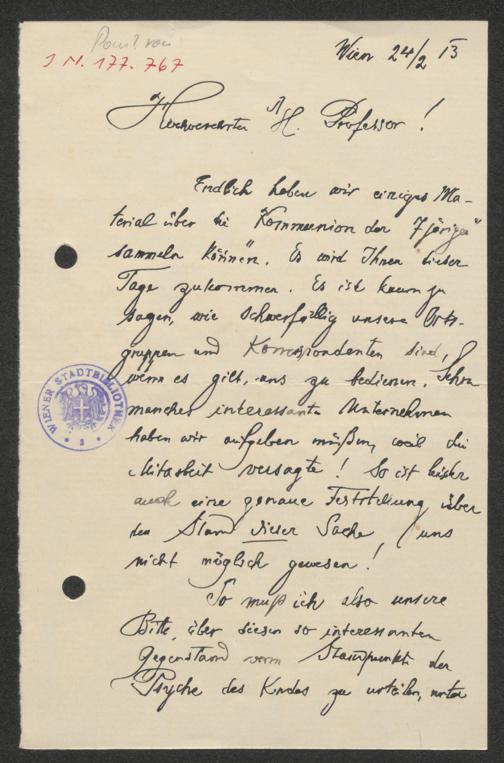 J. N. 177.767
Wien 24/2 13
Hochverehrter H. Professor!
Endlich haben wir einiges Ma-
terial über die "Kommunion der 7jährigen"
sammeln können. Es wird Ihnen dieser
Tage zukommen. Es ist kaum zu
sagen, wie schwerfällig unsere Orts-
gruppen und Korrespondenten sind,
wenn es gilt, uns zu bedienen. Schon
manches interessante Unternehmen
haben wir aufgeben müßen, weil die
Mitarbeit versagte! So ist leider
auch eine genaue Feststellung über
den Stand dieser Sache uns
nicht möglich gewesen!
So muß ich also unsere
Bitte, über diesen so interessanten
Gegenstand vom Standpunkte der
Psyche des Kindes zu urteilen, unter
WIENER STADTBIBLIOTHEK